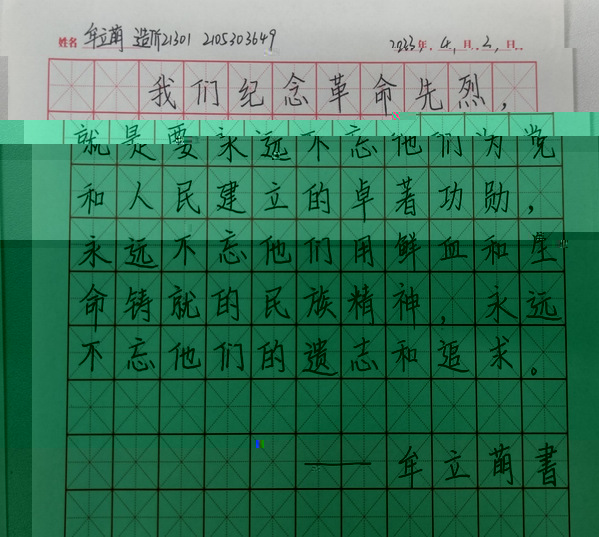 姓名 牟立萌 造价21301 2105303649 2023年4月2日
我们纪念革命先烈，
就是要永远不忘他们为党
和人民建立的卓著功勋，
永远不忘他们用鲜血和生
命铸就的民族精神，永远
不忘他们的遗志和追求。
—— 牟立萌书